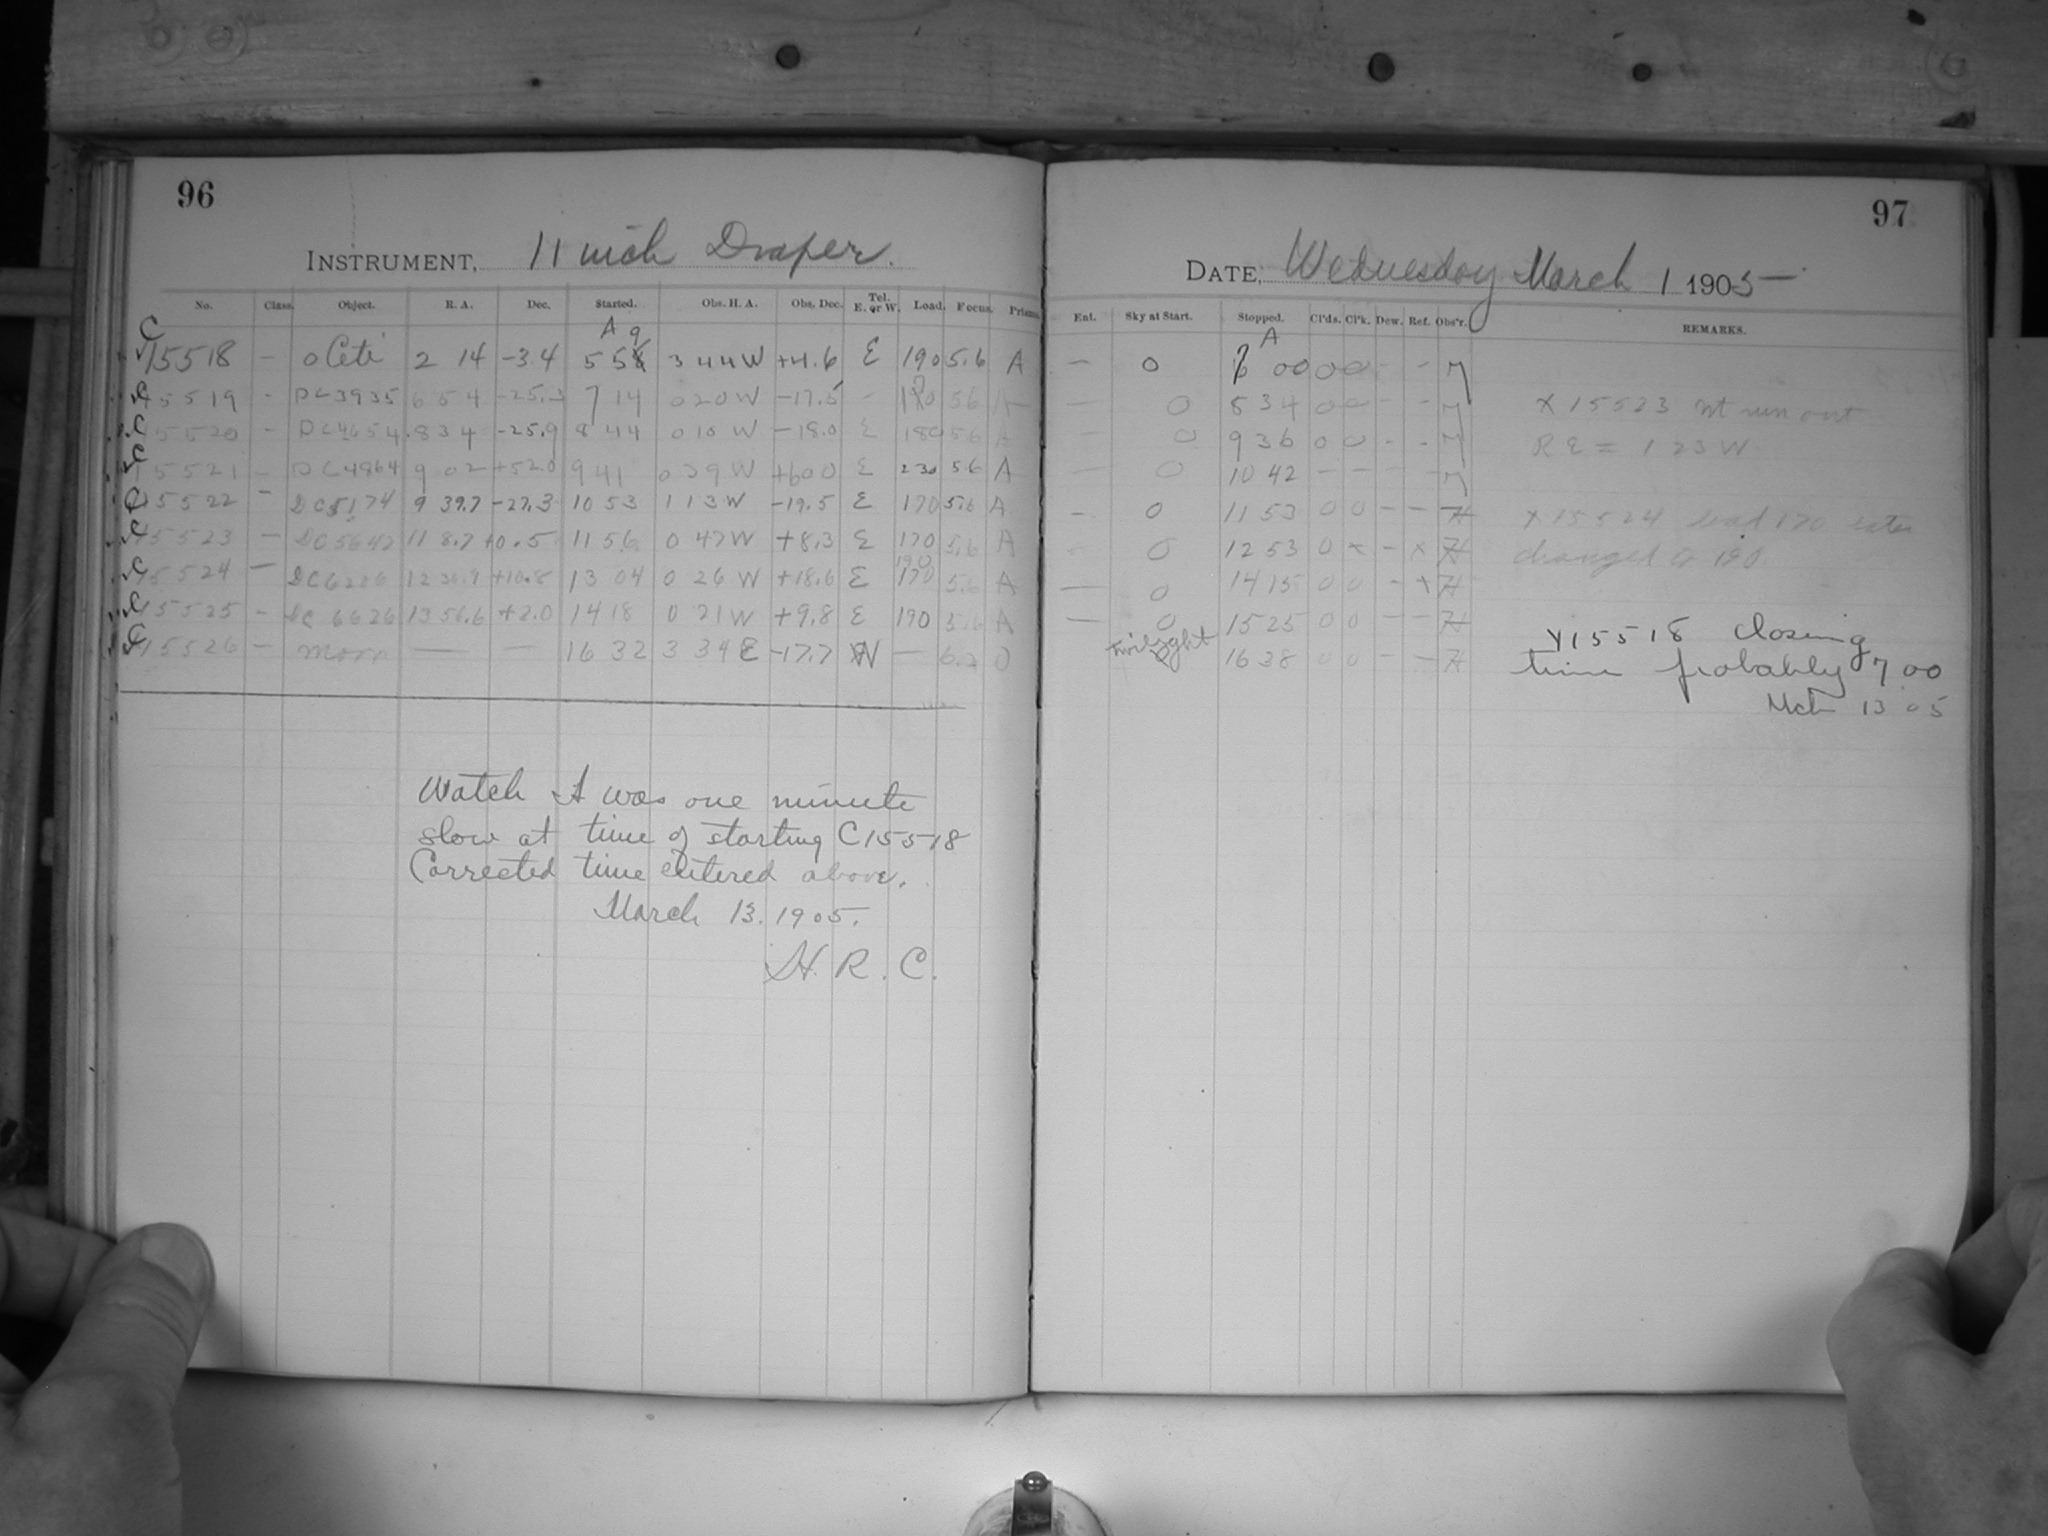 96
INSTRUMENT, 11 inch Draper.
No. Class. Object. R. A. Dec. Started. Obs. H. A. Obs. Dec. Tel. E. or W. Load. Focus. Prisms.
A 9
C 15518 – o Ceti 2 14 -3.4 5 58 3 44 W +4.6 E 190 5.6 A
C 15519 - DC 3935 6 54 -25.3 7 14 0 20 W -17.5 - 190 56 A
C 15520 - DC 4654 8 34 -25.9 8 44 0 10 W -18.0 E 180 56 A
C 15521 - DC 4864 9 02 +52.0 9 41 0 39 W +60 0 E 230 56 A
C 15522 - DC 5174 9 39.7 -27.3 10 53 1 13 W -19.5 E 170 5.6 A
C 15523 - DC 5642 11 8.7 +0.5 11 56 0 47 W +8.3 E 170 5.6 A
190
C 15524 - DC 6226 12 36.9 +10.8 13 04 0 26 W +18.6 E 170 5.6 A
C 15525 - DC 6626 13 56.6 +2.0 14 18 0 21 W +9.8 E 190 5.6 A
C 15526 - Moon — — 16 32 3 34 E -17.7 W — 6.2 0
Watch A was one minute
slow at time of starting C15518
Corrected time entered above.
March 13. 1905.
H. R. C.
97
DATE, Wednesday March 1 1905
Est. Sky at Start. Stopped. Cl'ds. Cl'k. Dew. Ref. Obs'r. REMARKS.
A
– 0 00 0 0 - - M
– 0 8 34 0 0 - - M X 15523 not run out
– 0 9 36 0 0 - - M RE = 1 23 W
– 0 10 42 – – – – M
– 0 11 53 0 0 – – H X 15524 load 170 later
- 0 12 53 0 x – x H changed to 190
– 0 14 15 0 0 - x H
– 0 15 25 0 0 – – H
Twilight 16 38 0 0 – – H
X15518 closing
time probably 7 00
Mch 13 05